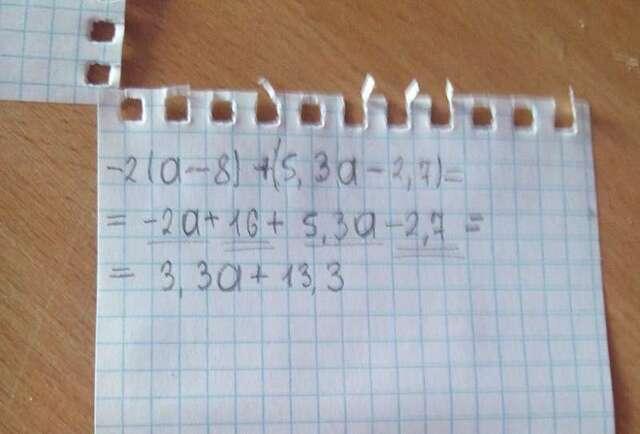 -2(a-8)+(5,3a-2,7)=
= -2a+16+5,3a-2,7 =
= 3,3a+13,3